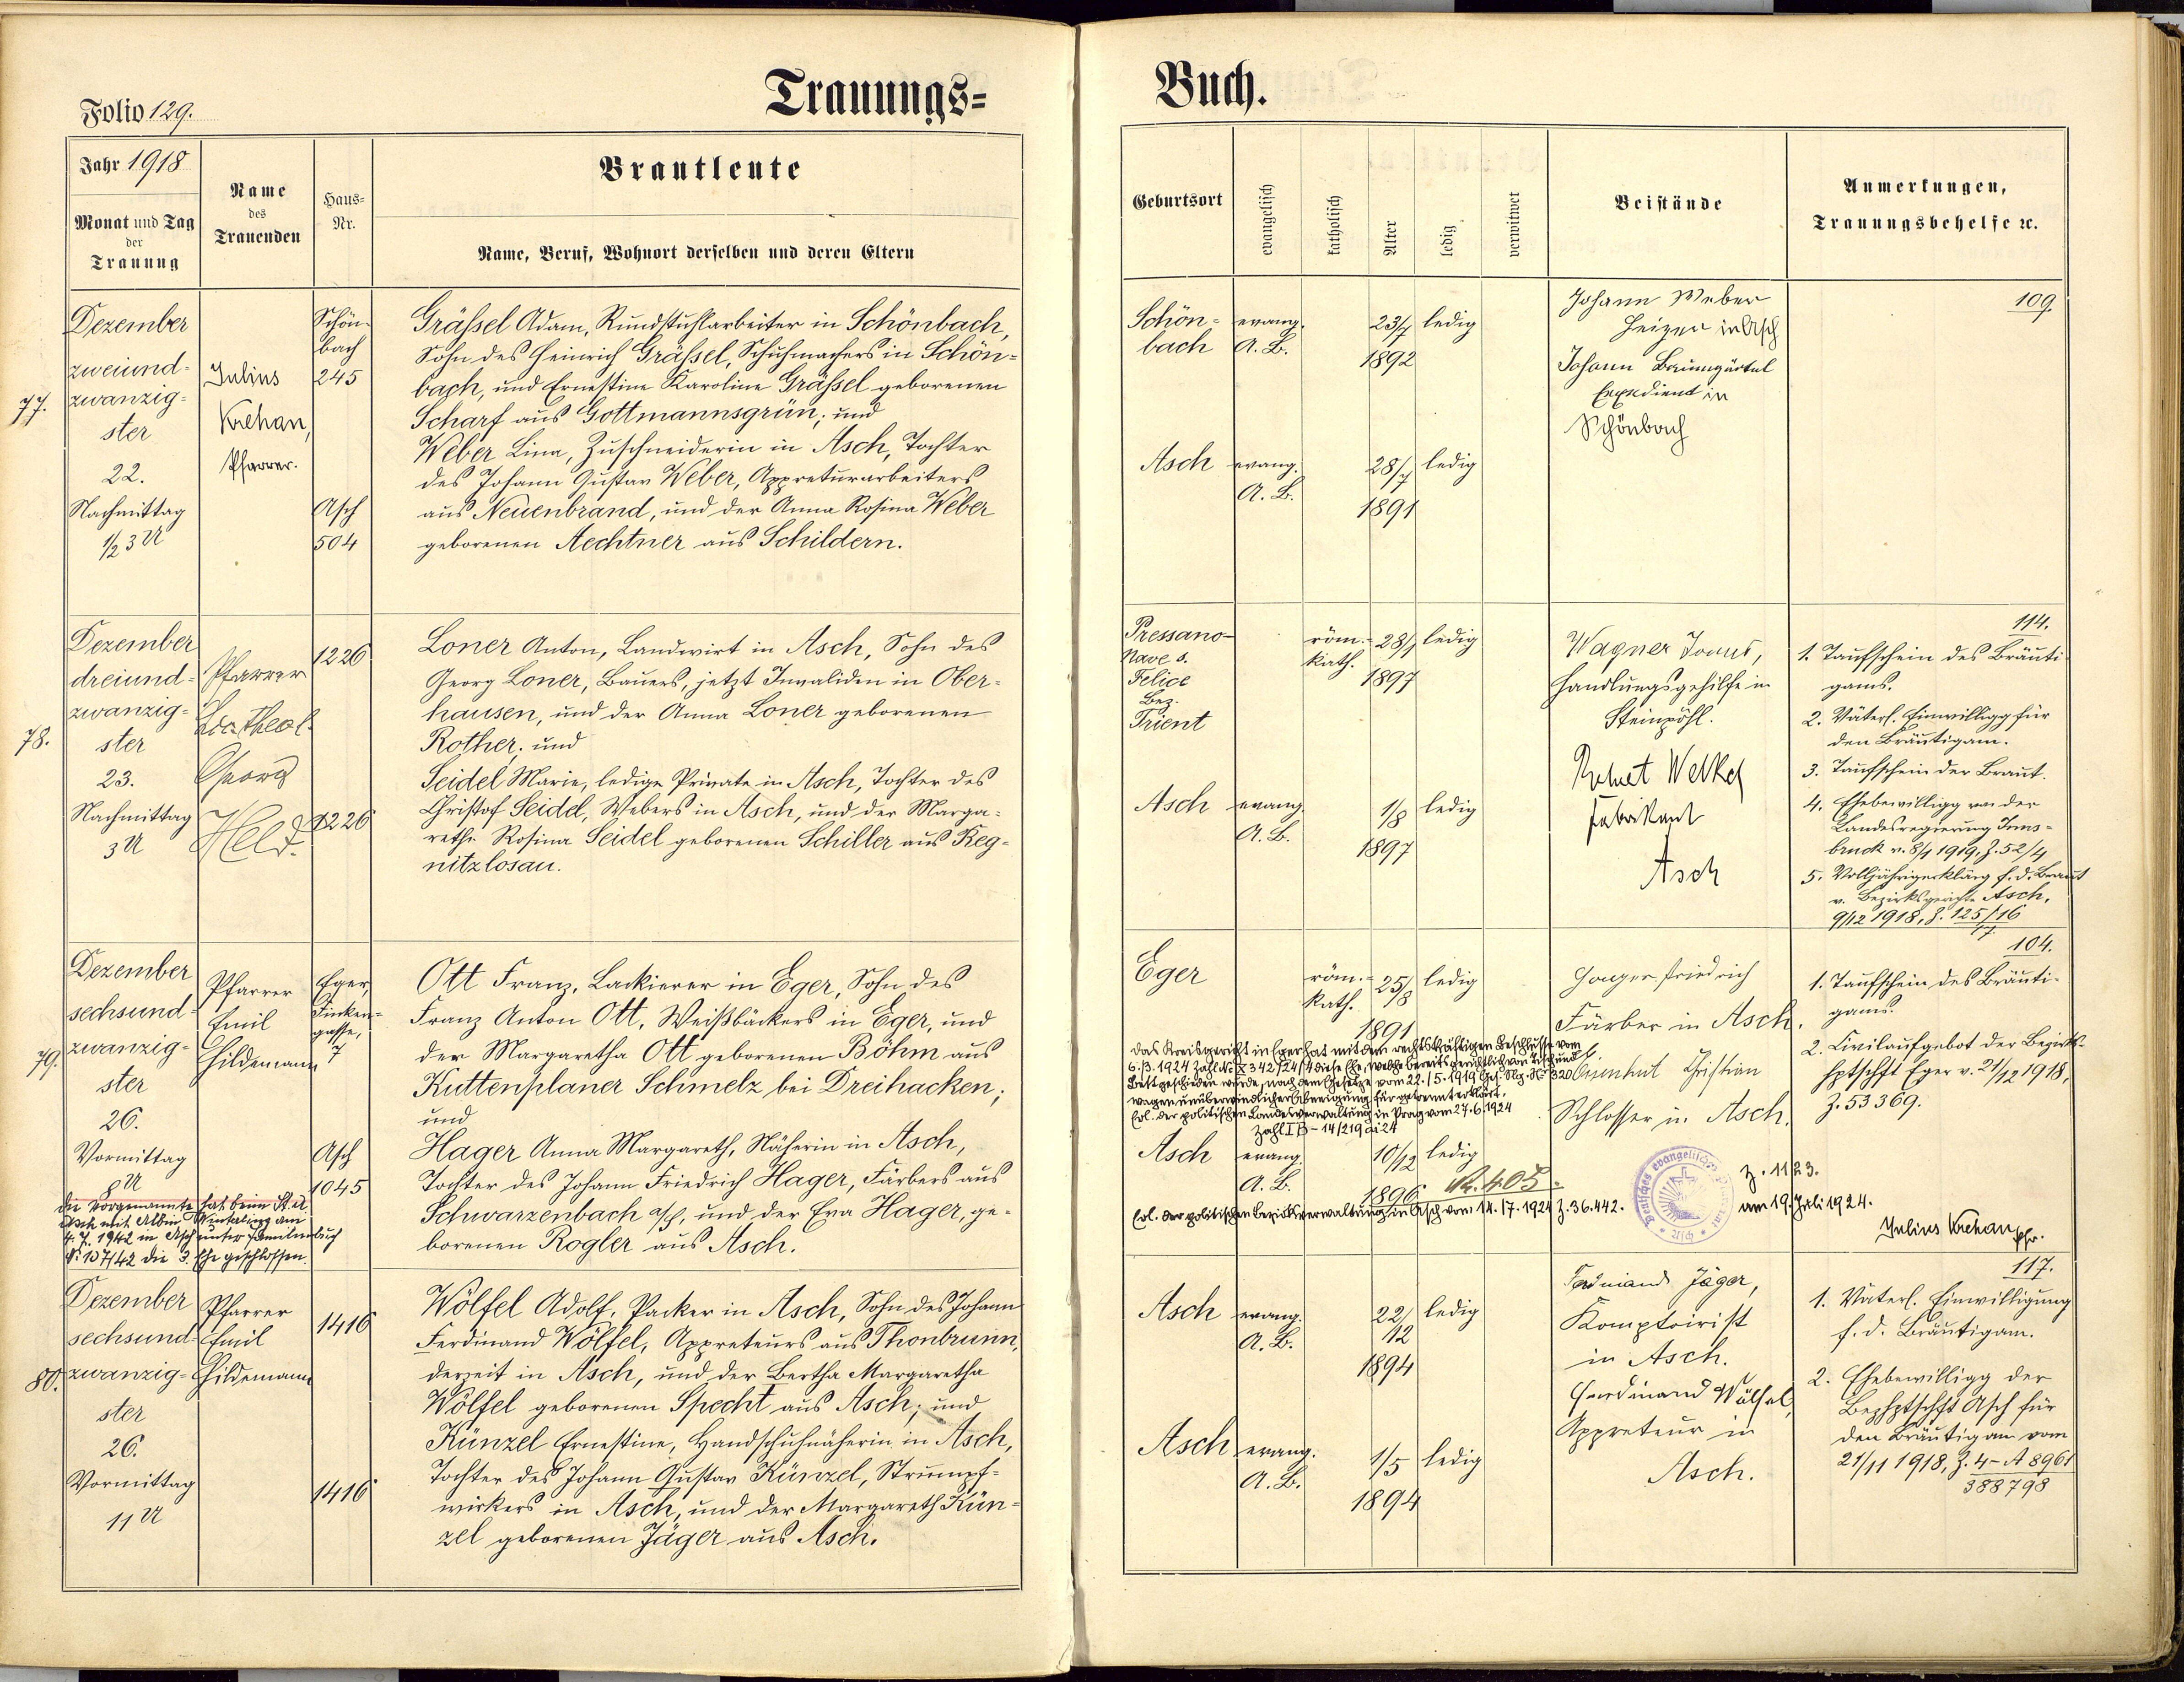 Trauungs=
Folio 129.
Jahr 1918
Monat und Tag
der
Trauung
Name
des
Trauenden
Haus=
Nr.
Brautleute
Name, Beruf, Wohnort derselben und deren Eltern
77.
Dezember
zweiund=
zwanzig=
ster
22.
Nachmittag
1/2 3 U
Julius
Krehan,
Pfarrer.
Schön-
bach
245
Asch
504
Gräßel Adam, Rundstuhlarbeiter in Schönbach,
Sohn des Heinrich Gräßel, Schuhmachers in Schön=
bach, und Ernestine Karoline Gräßel geborenen
Scharf aus Gottmannsgrün; und
Weber Lina, Zuschneiderin in Asch, Tochter
des Johann Gustav Weber, Appreturarbeiters
aus Neuenbrand, und der Anna Rosina Weber
geborenen Aechtner aus Schildern.
78.
Dezember
dreiund=
zwanzig=
ster
23.
Nachmittag
3 U
Pfarrer
Lic. theol.
Georg
Held.
1226
1226
Loner Anton, Landwirt in Asch, Sohn des
Georg Loner, Bauers, jetzt Invaliden in Ober=
hausen, und der Anna Loner geborenen
Rother. und
Seidel Marie, ledige Private in Asch, Tochter des
Christof Seidel, Webers in Asch, und der Marga=
rethe Rosina Seidel geborenen Schiller aus Reg=
nitzlosau.
79.
Dezember
sechsund=
zwanzig=
ster
26.
Vormittag
8 U
Pfarrer
Emil
Hildemann
Eger,
Finken=
gasse,
7
Asch
1045
Ott Franz, Lackierer in Eger, Sohn des
Franz Anton Ott, Weißbäckers in Eger, und
der Margaretha Ott geborenen Böhm aus
Kuttenplaner Schmelz bei Dreihacken;
und
Hager Anna Margareth, Näherin in Asch,
Tochter des Johann Friedrich Hager, Färbers aus
Schwarzenbach a/S, und der Eva Hager, ge=
borenen Rogler aus Asch.
die Vorgenannte hat beim St. A.
Asch mit Albin am
4. 7. 1942 in Asch unter Familienbuch
Nr. 107/42 die 3. Ehe geschlossen.
80.
Dezember
sechsund=
zwanzig=
ster
26.
Vormittag
11 U
Pfarrer
Emil
Hildemann
1416
1416
Wölfel Adolf, Packer in Asch, Sohn des Johann
Ferdinand Wölfel, Appreteurs aus Thonbrunn,
derzeit in Asch, und der Bertha Margaretha
Wölfel geborenen Specht aus Asch; und
Künzel Ernestine, Handschuhnäherin in Asch,
Tochter des Johann Gustav Künzel, Strumpf=
wirkers in Asch, und der Margareth Kün=
zel geborenen Jäger aus Asch.
Buch.
Geburtsort
evangelisch
katholisch
Alter
ledig
verwitwet
Beistände
Anmerkungen,
Trauungsbehelfe ec.
Schön=
bach
evang.
A. B.
23/7
1892
ledig
Johann Weber
Heizer in Asch
Johann Baumgärtel
Expedient in
Schönbach
109.
Asch
evang.
A. B.
28/7
1891
ledig
Pressano-
Nave s.
Felice
Bez.
Trient
röm.=
kath.
28/1
1897
ledig
Wagner
Handlungsgehilfe in
Steinpöhl.
Welkel
Fabrikant
Asch
114.
1. Taufschein des Bräuti
gams.
2. Väterl. Einwilligg für
den Bräutigam.
3. Taufschein der Braut.
4. Ehebewilligg von der
Landesregierung Inns=
bruck v. 8/1 1919, Z. 52/4
5. Volljährigerklärg f. d. Braut
v. Bezirksgericht Asch,
9/12 1918, P. 125/16
17.
Asch
evang.
A. B.
1/8
1897
ledig
Eger
röm.=
kath.
25/8
1891
ledig
Hager Friedrich
Färber in Asch.
Christian
Schlosser in Asch.
104.
1. Taufschein des Bräuti=
gams.
2. Civilaufgebot der Bezirks=
hptschft Eger v. 21/12 1918,
Z. 53369.
Das Kreisgericht in Eger hat mit dem rechtskräftigen Beschlusse vom
6./3. 1924 Zahl Nc X 342/24/4 diese Ehe, welche bereits gerichtlich von Tisch und
Bett geschieden wurde, nach dem Gesetze vom 22./5. 1919 Ges. Slg. No 320
wegen unüberwindlicher Abneigung für getrennt erklärt.
Erl. der politischen Landesverwaltung in Prag vom 27. 6. 1924
Zahl I B - 14/219 ai 24
Asch
evang.
A. B.
10/12
1896
ledig
Nr. 405.
Erl. der politischen Bezirksverwaltung in Asch vom 14. 17. 1924 Z. 36.442.
Deutsches evangelisches Pfarramt
* Asch *
Z. 1123.
am 19. Juli 1924.
Julius Krehan Pfr.
Asch
evang.
A. B.
22/12
1894
ledig
Ferdinand Jäger,
Komptoirist
in Asch.
Ferdinand Wölfel,
Appreteur in
Asch.
117.
1. Väterl. Einwilligung
f. d. Bräutigam.
2. Ehebewilligg der
Bezhptschft Asch für
den Bräutigam vom
21/11 1918, Z. 4-A 8961
388798
Asch
evang.
A. B.
1/5
1894
ledig